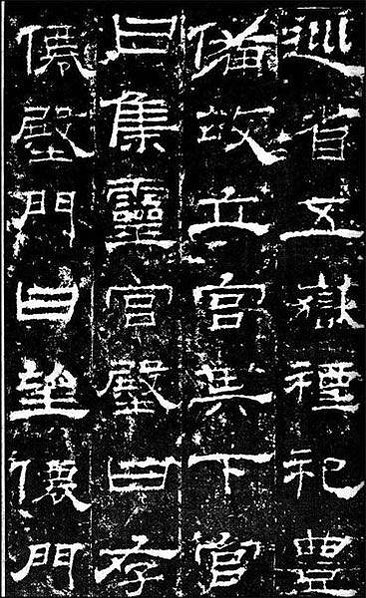 巡省五嶽禋祀豐
備故立宮其下宮
曰集靈宮殿曰存
僊殿門曰望僊門